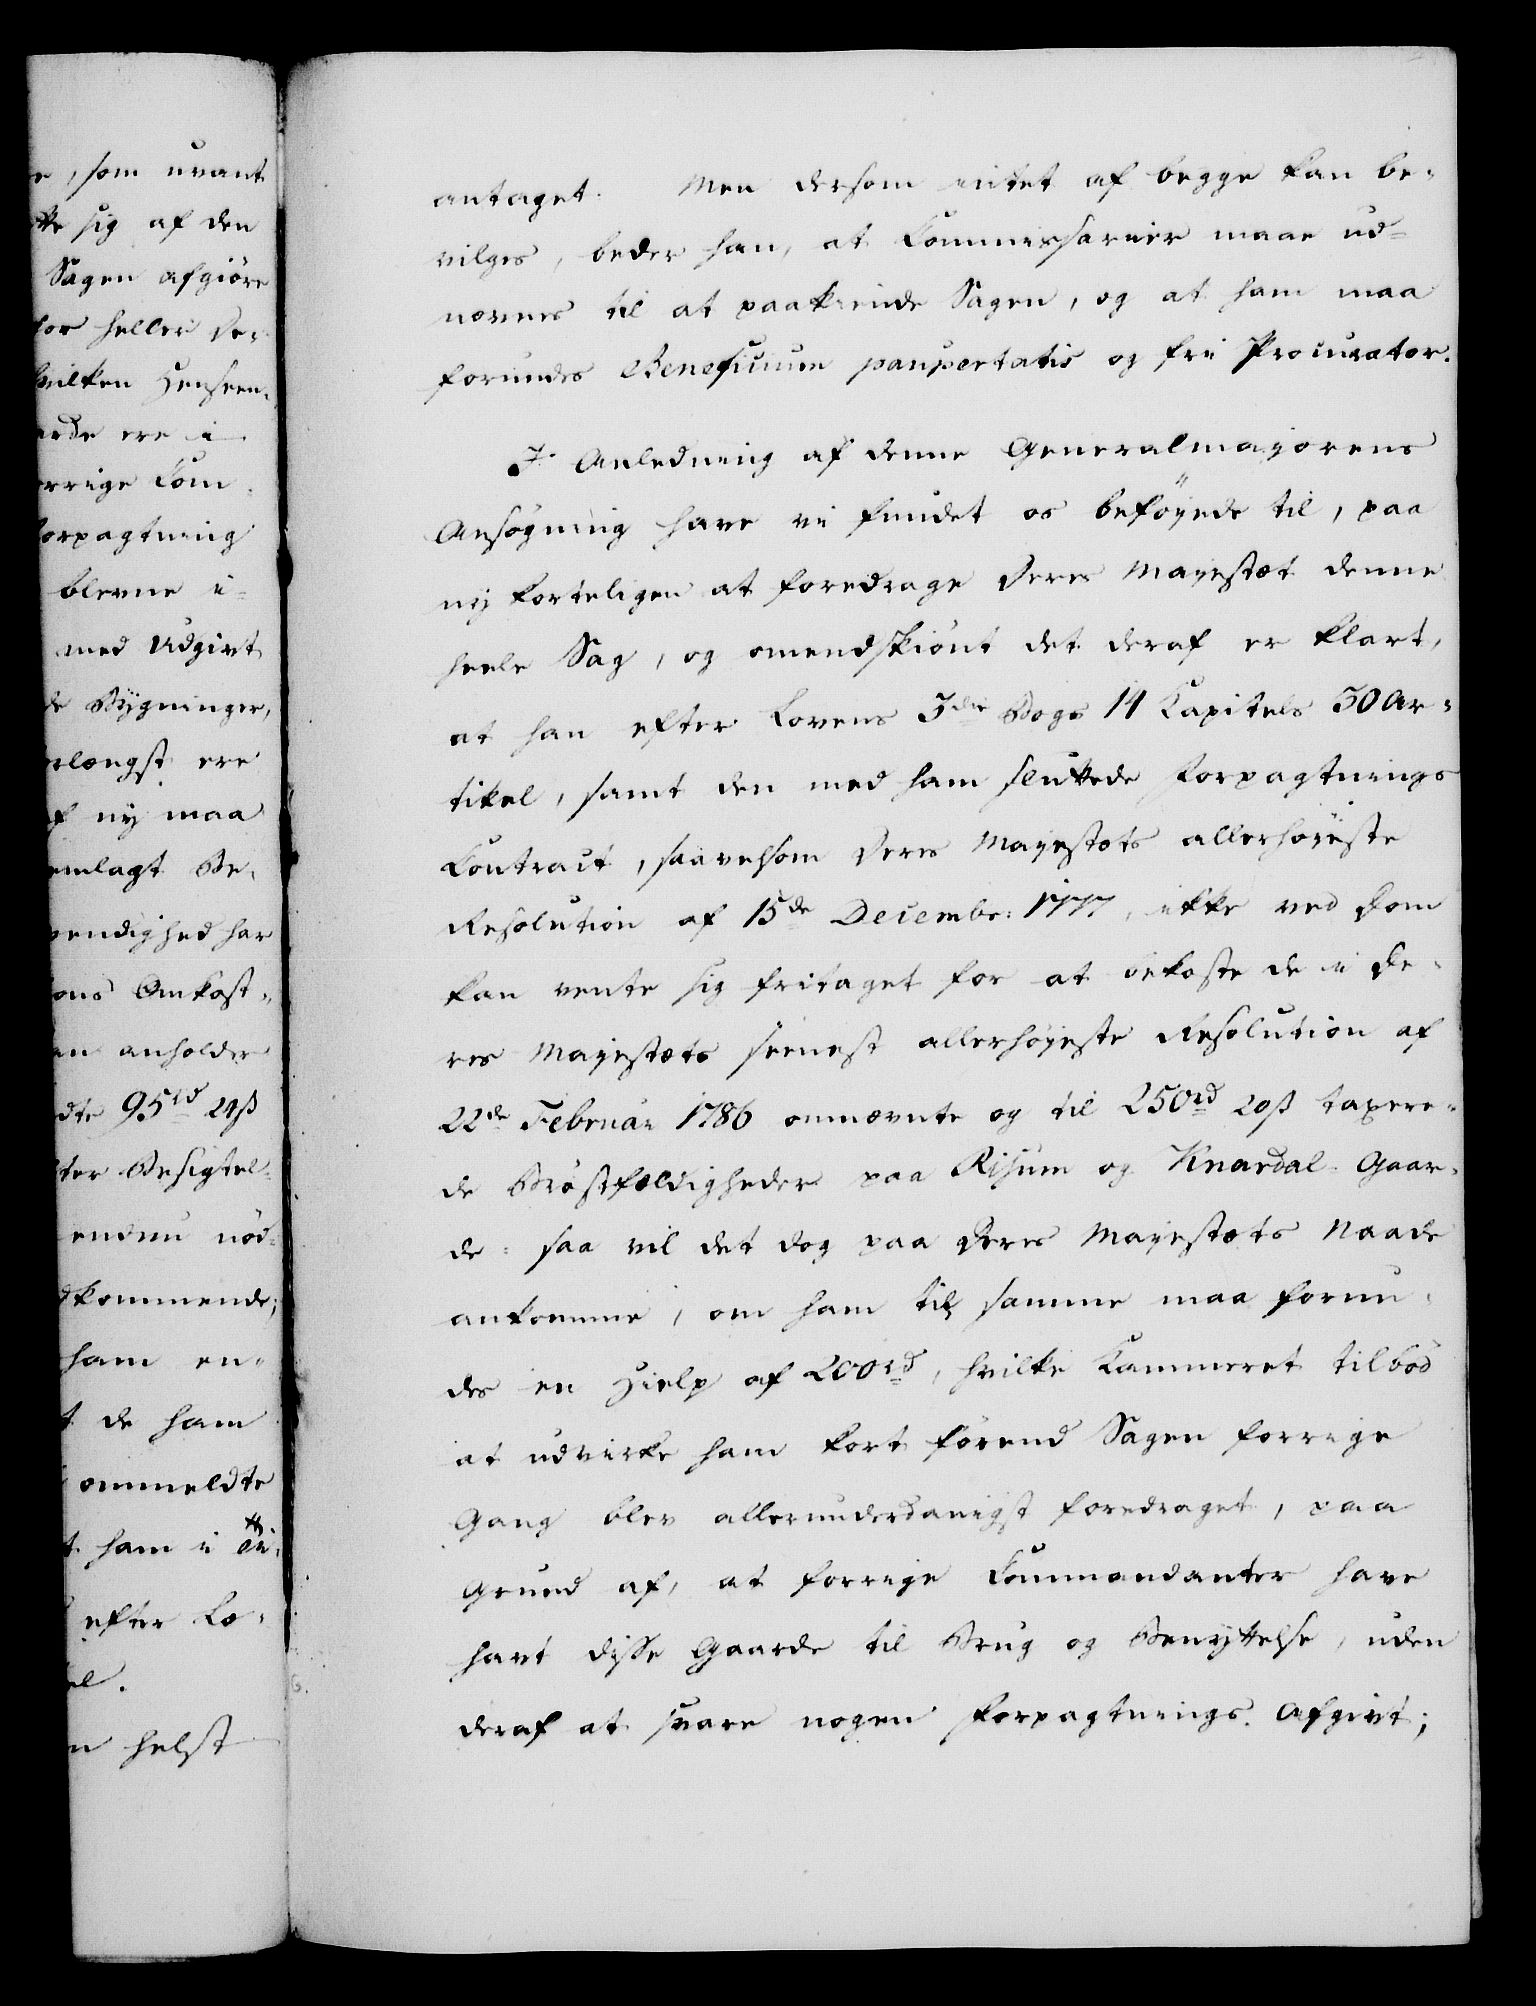 e, som uvant
tte sig af den
Sagen afgiöre
for heller De-
hvilken Henseen-
arde ere i
orrige Com
orpagtning
blevne i-
med Udgivt
de Bygninger,
rlængst ere
f ny maa
emlagt Be-
vendighed har
ons Omkost-
an anholder
dte 95 rd 21 ß
ter Besigtel-
endnu nöd-
dkommende;
ham en-
t de ham
ommeldte
t ham i Ti-
efter Lo-
el.
n helst
antaget. Men dersom intet af begge kan be-
vilges, beder han, at Commissarier maae ud-
nævnes til at paakiende Sagen, og at ham maa
forundes Beneficium paupertatis og frie Procurator.
I Anledning af denne Generalmajorens
Ansögning have vi fundet os beföyede til, paa
ny korteligen at foredrage Deres Mayestæt denne
heele Sag, og omendskiönt det deraf er klart,
at han efter Lovens 3die Bogs 14 Capitels 30 Ar-
tikel, samt den med ham sluttede Forpagtnings
Contract, saavelsom Deres Mayestæts allerhöyeste
Resolution af 15de Decembr: 1777, ikke ved Dom
kan vente sig fritaget for at bekoste de i De-
res Mayestæts seenest allerhöyeste Resolution af
22de Februar 1786 omnævnte og til 250 rd 20 ß taxere-
de Bröstfældigheder paa Risum og Knardal-Gaar-
de: saa vil det dog paa Deres Mayestæts Naade
ankomme, om ham til samme maa forun-
des en Hielp af 200 rd, hvilke Kammeret tilböd
at udvirke ham kort förend Sagen forrige
Gang blev allerunderdanigst foredraget, paa
Grund af, at forrige Commendanter have
havt disse Gaarde til Brug og Benyttelse, uden
deraf at svare nogen Forpagtnings-Afgivt;